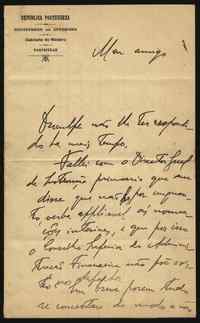 REPUBLICA PORTUGUEZA
MINISTERIO DO INTERIOR
Gabinete do Ministro
PARTICULAR
Meu amigo
Desculpe não lhe ter respondi-
do ha mais tempo.
Fallei com o Director Geral
de Instrução primaria que me
disse que não ha por enquan-
to, verba applicavel ás nomea-
ções interinas, e que por isso
o Conselho Superior de Admnis-
tração Financeira não põe o vis-
to
Em breve porem tudo
se concertará de modo a